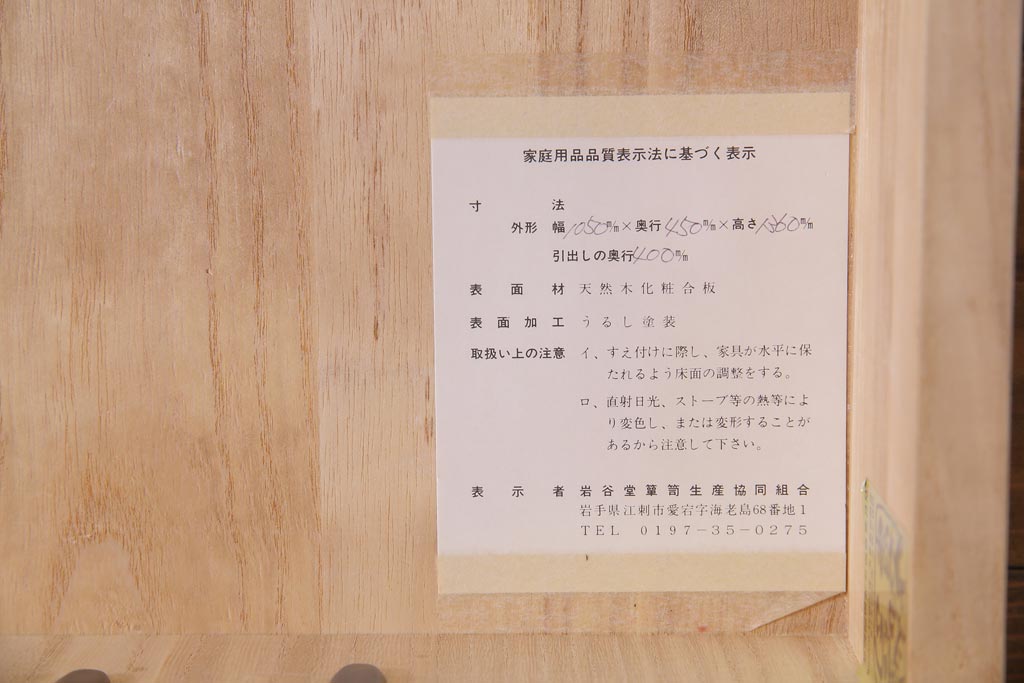 家庭用品品質表示法に基づく表示
寸法
外形 幅1050m/m×奥行450m/m×高さ1360m/m
引出しの奥行400m/m
表面材 天然木化粧合板
表面加工 うるし塗装
取扱い上の注意 イ、すえ付けに際し、家具が水平に保
たれるよう床面の調整をする。
ロ、直射日光、ストーブ等の熱等によ
り変色し、または変形することが
あるから注意して下さい。
表示者 岩谷堂簞笥生産協同組合
岩手県江刺市愛宕字海老島68番地1
TEL 0197-35-0275